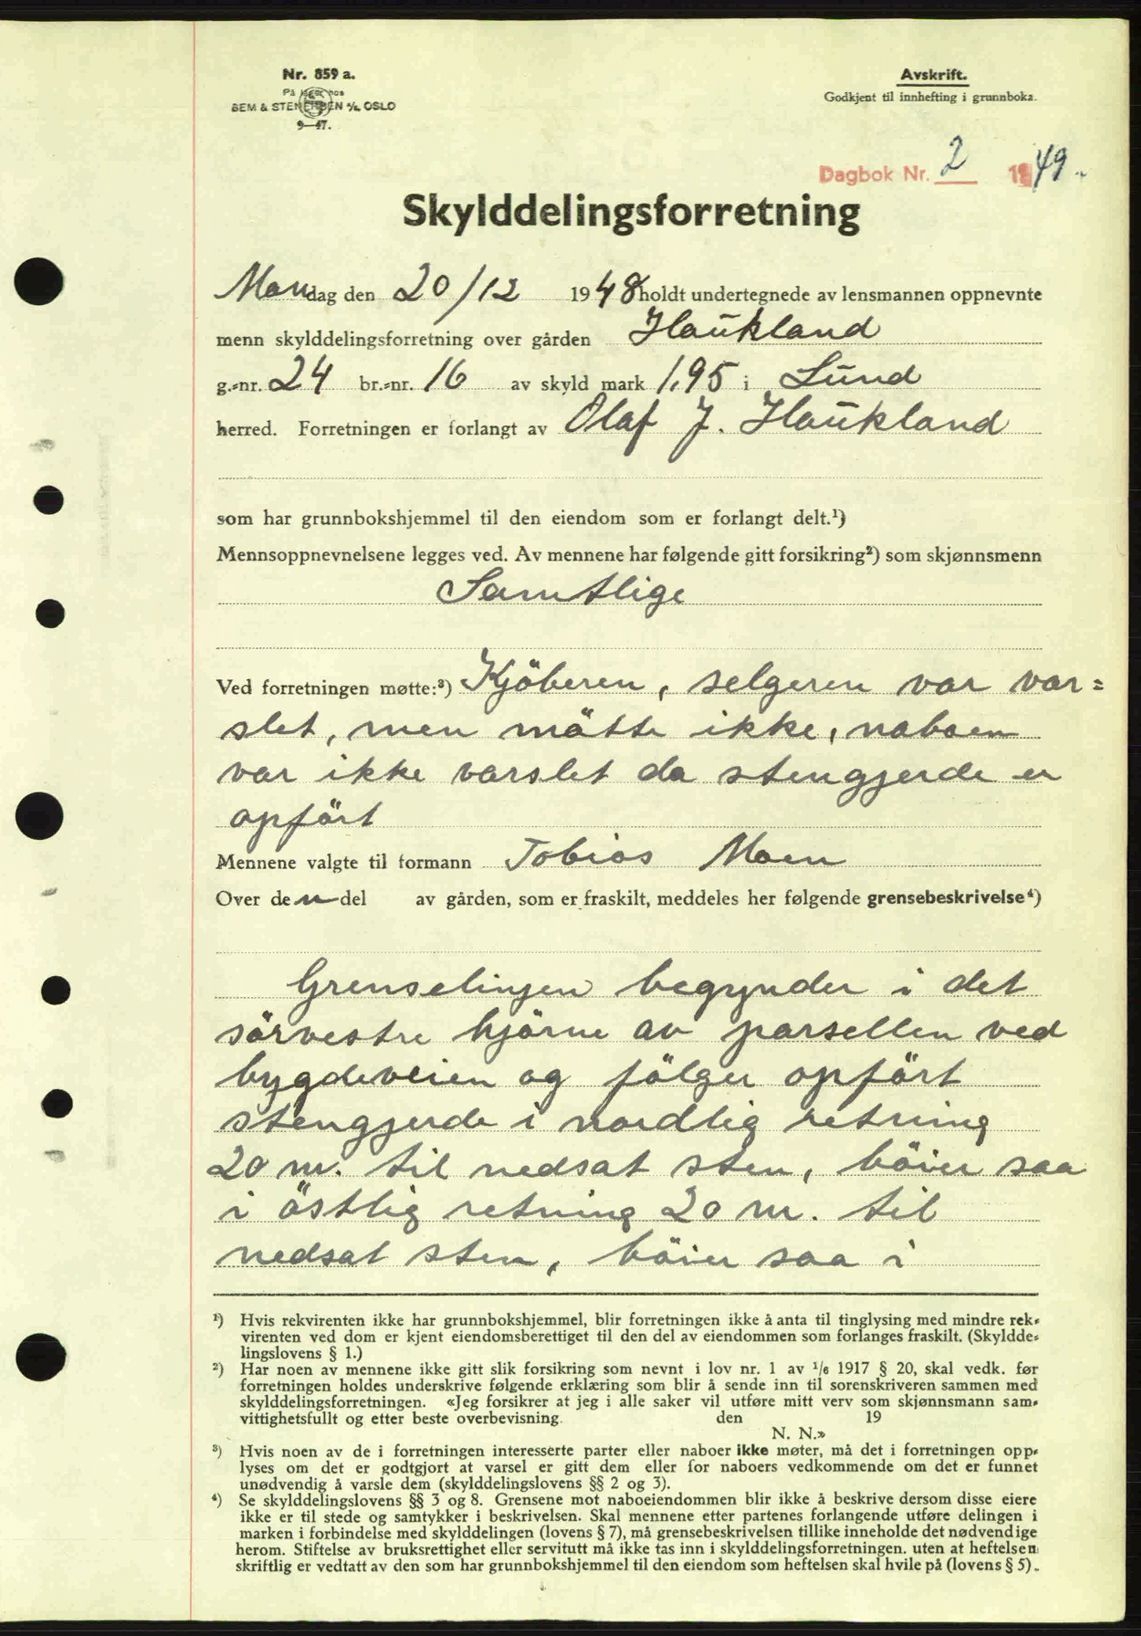 Nr. 859 a.
På lager hos
SEM & STENERSEN A/S. OSLO
9—47.
Avskrift.
Godkjent til innhefting i grunnboka.
Dagbok Nr. 2 1949.
Skylddelingsforretning
Mandag den 20/12 1948 holdt undertegnede av lensmannen oppnevnte
menn skylddelingsforretning over gården Haukland
g.-nr. 24 br.-nr. 16 av skyld mark 1,95 i Lund
herred. Forretningen er forlangt av Olaf J. Haukland
som har grunnbokshjemmel til den eiendom som er forlangt delt.¹)
Mennsoppnevnelsene legges ved. Av mennene har følgende gitt forsikring²) som skjønnsmenn
Samtlige
Ved forretningen møtte:³) Kjöberen, selgeren var var=
slet, men mätte ikke, naboen
var ikke varslet da stengjerde er
opfört
Mennene valgte til formann Tobias Moen
Over den del av gården, som er fraskilt, meddeles her følgende grensebeskrivelse⁴)
Grenselinjen begynder i det
sörvestre hjörne av parsellen ved
bygdeveien og fölger opfört
stengjerde i nordlig retning
20 m. til nedsat sten, böier saa
i östlig retning 20 m. til
nedsat sten, böier saa i
¹) Hvis rekvirenten ikke har grunnbokshjemmel, blir forretningen ikke å anta til tinglysing med mindre rek-
virenten ved dom er kjent eiendomsberettiget til den del av eiendommen som forlanges fraskilt. (Skyldde-
lingslovens § 1.)
²) Har noen av mennene ikke gitt slik forsikring som nevnt i lov nr. 1 av 1/6 1917 § 20, skal vedk. før
forretningen holdes underskrive følgende erklæring som blir å sende inn til sorenskriveren sammen med
skylddelingsforretningen. «Jeg forsikrer at jeg i alle saker vil utføre mitt verv som skjønnsmann sam-
vittighetsfullt og etter beste overbevisning. den 19
N. N.»
³) Hvis noen av de i forretningen interesserte parter eller naboer ikke møter, må det i forretningen opp-
lyses om det er godtgjort at varsel er gitt dem eller for naboers vedkommende om det er funnet
unødvendig å varsle dem (skylddelingslovens §§ 2 og 3).
⁴) Se skylddelingslovens §§ 3 og 8. Grensene mot naboeiendommen blir ikke å beskrive dersom disse eiere
ikke er til stede og samtykker i beskrivelsen. Skal mennene etter partenes forlangende utføre delingen i
marken i forbindelse med skylddelingen (lovens § 7), må grensebeskrivelsen tillike inneholde det nødvendige
herom. Stiftelse av bruksrettighet eller servitutt må ikke tas inn i skylddelingsforretningen. uten at heftelsen
skriftlig er vedtatt av den som har grunnbokshjemmel til den eiendom som heftelsen skal hvile på (lovens § 5).